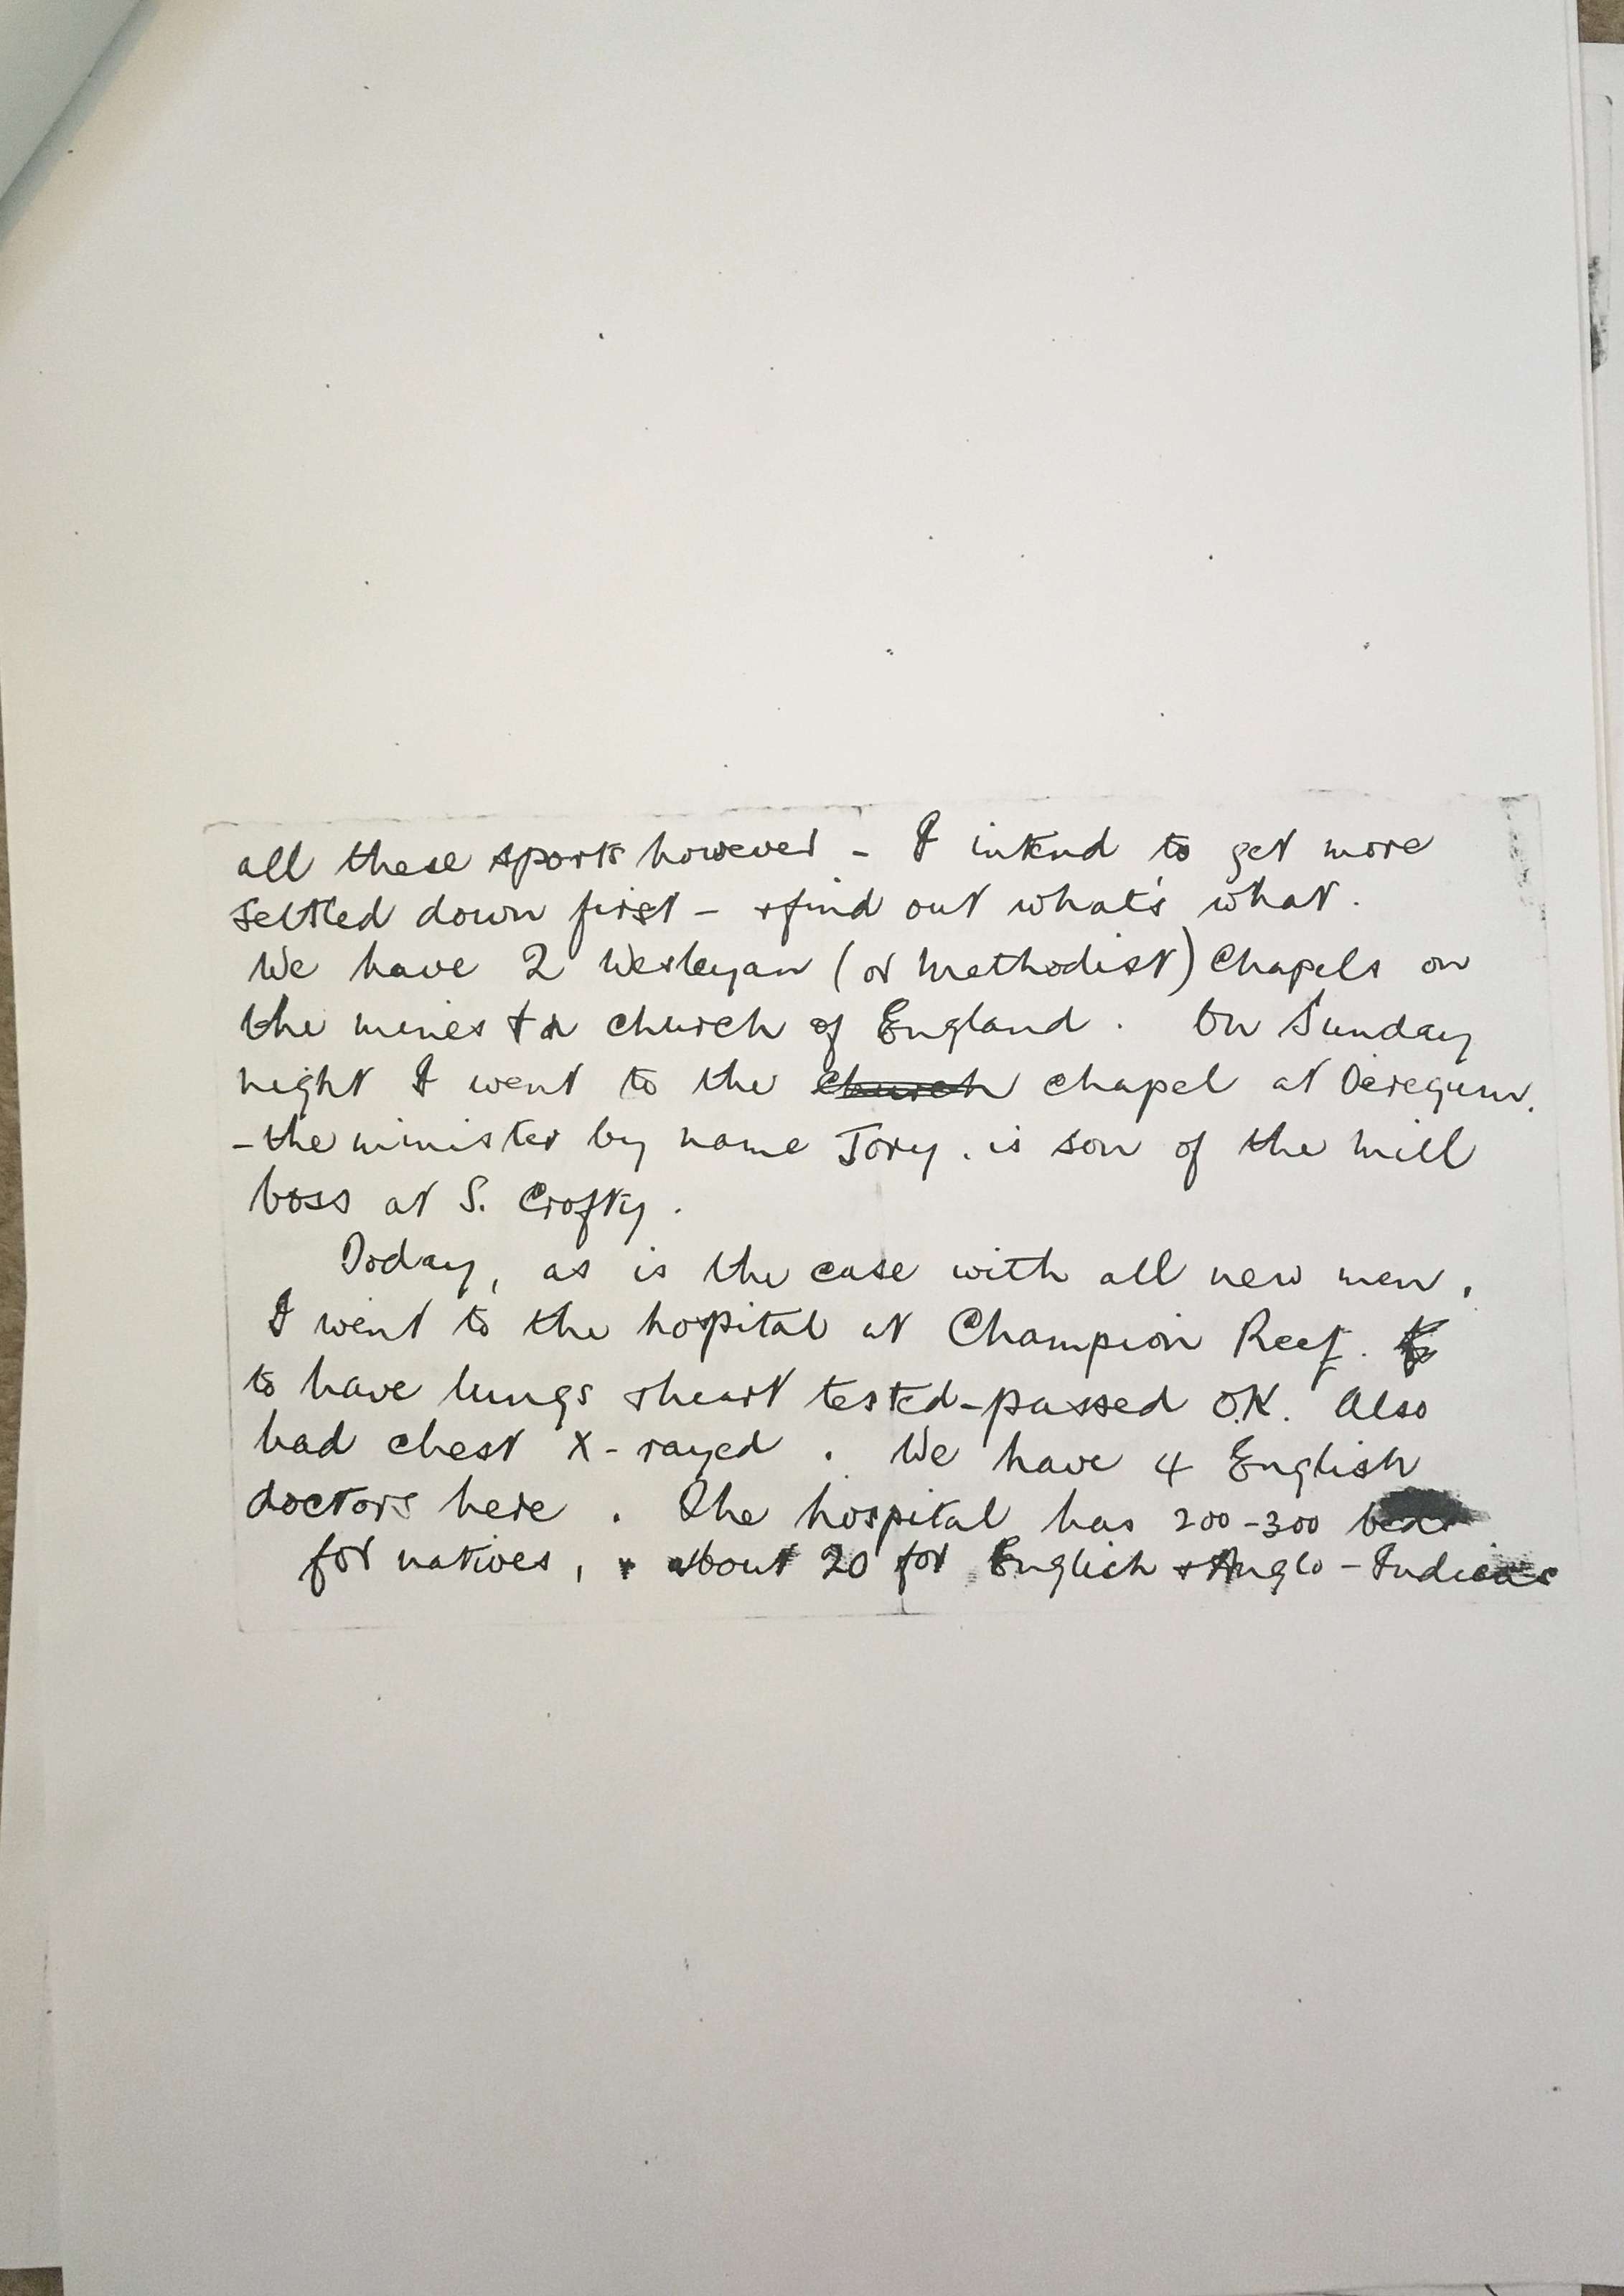 all these sports however - I intend to get more
settled down first - & find out what's what.
We have 2 Wesleyan (or Methodist) Chapels on
the mines + a church of England. On Sunday
night I went to the church chapel at Ooregum.
- the minister by name Jory. is son of the mill
boss at S. Crofty.
Today, as is the case with all new men,
I went to the hospital at Champion Reef.
to have lungs & heart tested - passed O.K. Also
had chest X-rayed. We have 4 English
doctors here. The hospital has 200-300 beds
for natives, & about 20 for English & Anglo-Indians